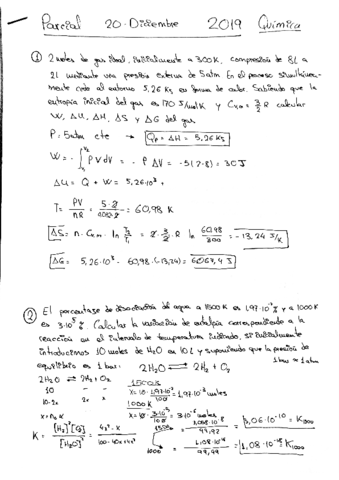 Parcial 20-Diciembre 2019 Química
① 2 moles de gas ideal, inicialmente a 300K, compresión de 8L a
2l mediante una presión externa de 5atm. En el proceso simultánea-
mente cede al entorno 5,26 KJ en forma de calor. Sabiendo que la
entropía inicial del gas es 170 J/molK y Cv,m = 3/2 R calcular
W, ΔU, ΔH, ΔS y ΔG del gas
P = 5atm cte → Qp = ΔH = 5,26 KJ
W = -∫ P dV = - P ΔV = -5(2-8) = 30J
ΔU = Q + W = 5,26·10³ +
T = PV/nR = = 60,98 K
ΔS = n · Cv,m · ln T₂/T₁ = 2 · 3/2 · R ln 60,98/300 = -13,24 J/K
ΔG = 5,26·10³ - 60,98·(-13,24) = 6067,4 J
② El porcentaje de disociación del agua a 1500K es 1,97·10⁻² % y a 1000K
es 3·10⁻⁵ %. Calcular la variación de entalpía correspondiendo a la
reacción en el intervalo de temperatura indicado, si inicialmente
introducimos 10 moles de H₂O en 10l y suponiendo que la presión de
equilibrio es 1 bar. 2H₂O ⇌ 2H₂ + O₂ 1 bar ≈ 1 atm
2H₂O ⇌ 2H₂ + O₂ 1500K
10 - -
10-2x 2x x
1000K
K = [H₂]²[O₂]/[H₂O]² = 4x²·x/100-40x+4x²